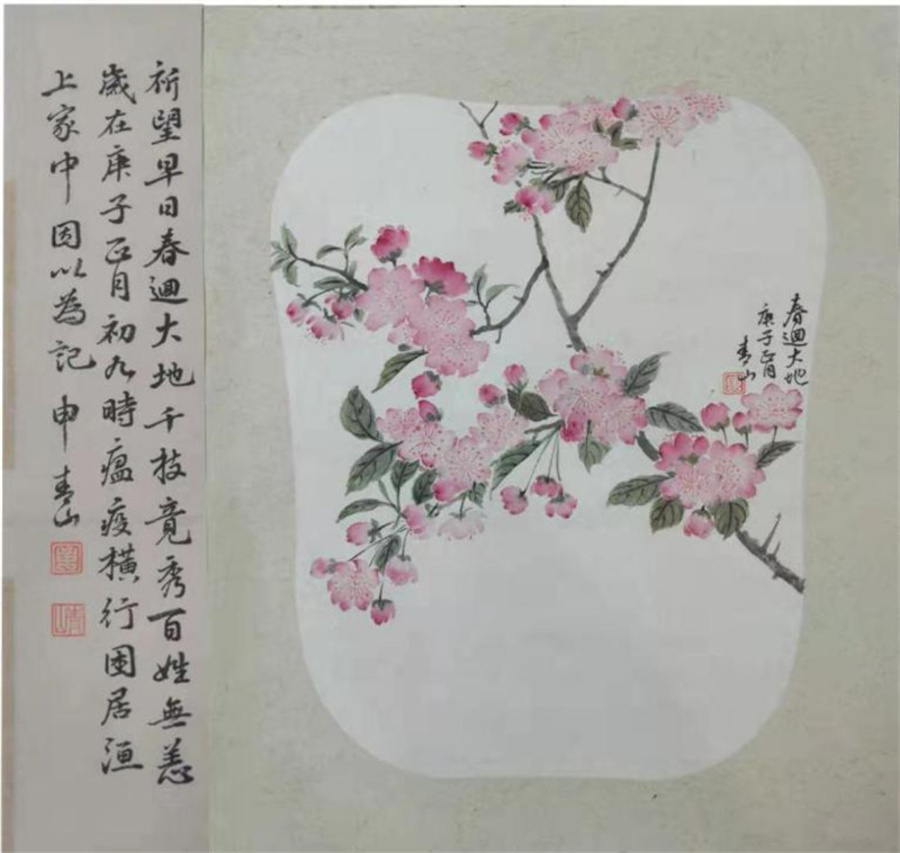 春迴大地
庚子正月
青山
祈望早日春迴大地千枝竟秀百姓無恙
歲在庚子正月初九時瘟疫橫行困居洹
上家中因以為記 申青山